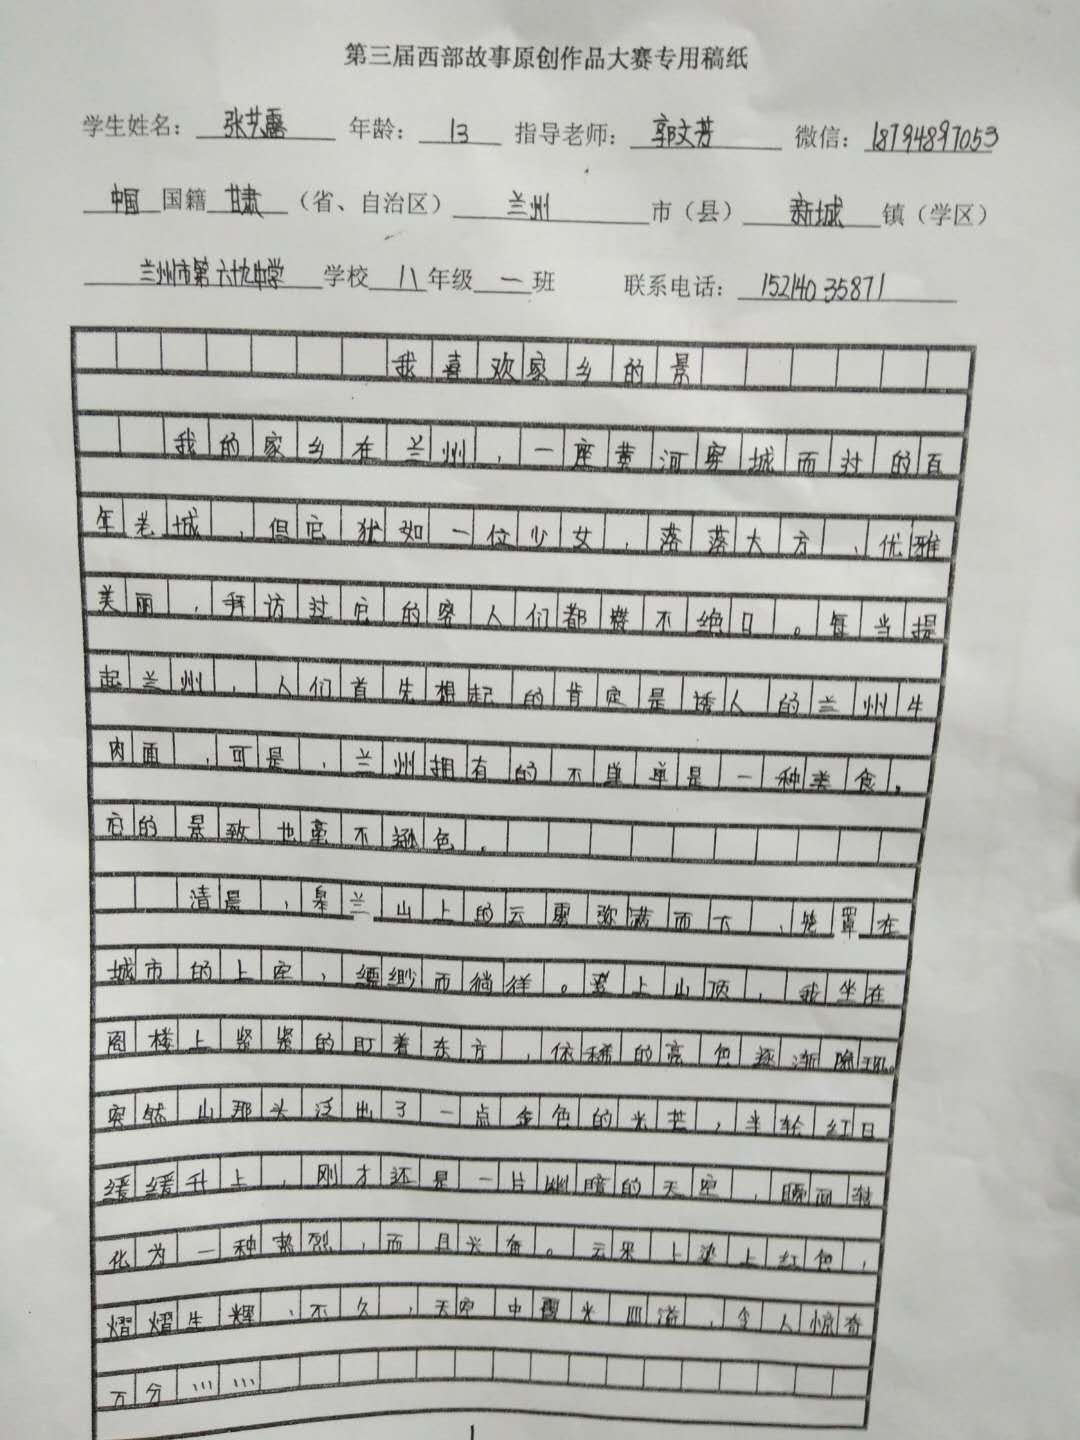 第三届西部故事原创作品大赛专用稿纸
学生姓名：张艺馨 年龄：13 指导老师：郭文芳 微信：18794897053
中国国籍甘肃（省、自治区）兰州市（县）新城镇（学区）
兰州市第六十九中学学校八年级一班 联系电话：15214035871
我喜欢家乡的景
我的家乡在兰州，一座黄河穿城而过的百
年老城，但它犹如一位少女，落落大方、优雅
美丽，拜访过它的客人们都赞不绝口。每当提
起兰州，人们首先想起的肯定是诱人的兰州牛
肉面，可是，兰州拥有的不单单是一种美食，
它的景致也毫不逊色。
清晨，皋兰山上的云雾弥满而下，笼罩在
城市的上空，缥缈而徜徉。登上山顶，我坐在
阁楼上紧紧的盯着东方，依稀的亮色逐渐隐现。
突然山那头泛出了一点金色的光芒，半轮红日
缓缓升上，刚才还是一片幽暗的天空，瞬间转
化为一种热烈，而且兴奋。云朵上染上红色，
熠熠生辉，不久，天空中霞光四溢，令人惊奇
万分……
1